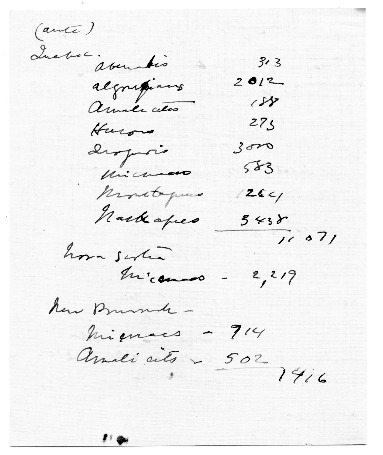 (ante)
Quebec.
Abenakis 313
Algonquins 2012
Amalicites 188
Hurons 273
Iroquois 3000
Micmacs 583
Montagnais 1264
Naskapees 3438
11071
Nova Scotia
Micmacs - 2,219
New Brunswick -
Micmacs - 914
Amalicits - 502
1416